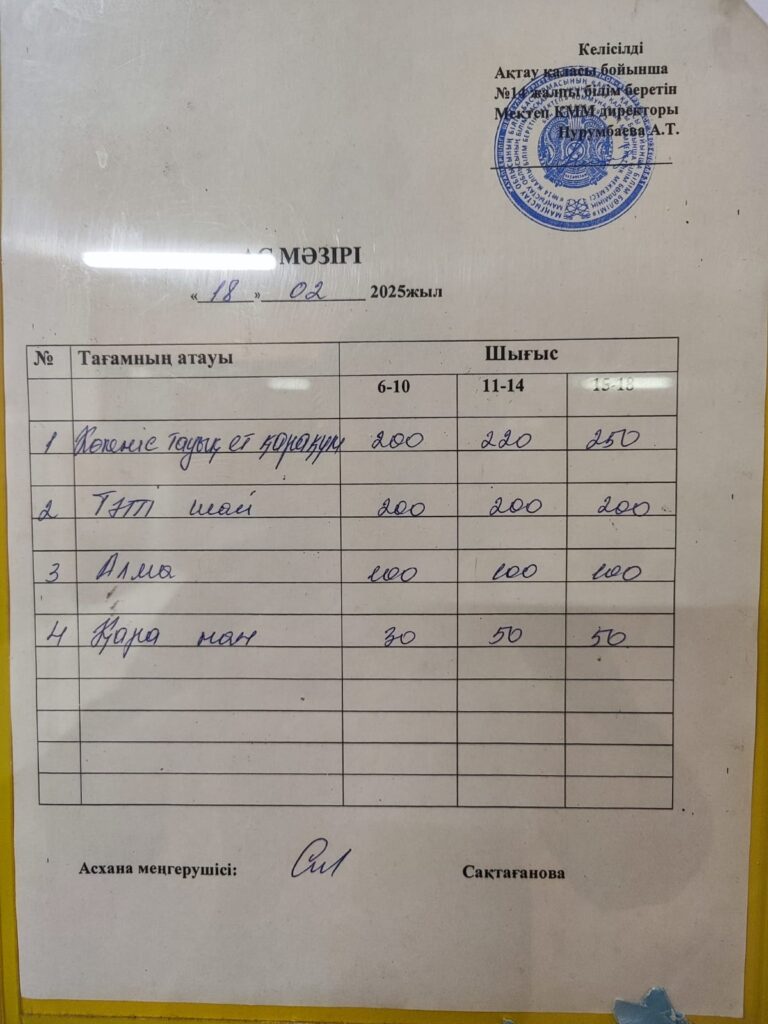 Келісілді
Ақтау қаласы бойынша
№14 жалпы білім беретін
Мектеп КММ директоры
Нурумбаева А.Т.
АС МӘЗІРІ
« 18 » 02 2025жыл
№ Тағамның атауы Шығыс
6-10 11-14 15-18
1 Көкөніс тауық ет қарақұм 200 220 250
2 Тәтті шай 200 200 200
3 Алма 100 100 100
4 Қара нан 30 50 50
Асхана меңгерушісі: Сақтағанова